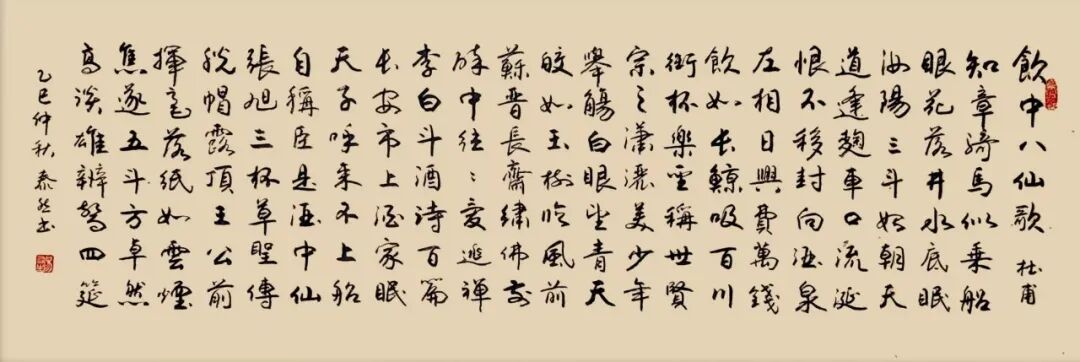 飲中八仙歌 杜甫
知章騎馬似乘船
眼花落井水底眠
汝陽三斗始朝天
道逢麹車口流涎
恨不移封向酒泉
左相日興費萬錢
飲如長鯨吸百川
銜杯樂聖稱世賢
宗之瀟灑美少年
舉觴白眼望青天
皎如玉樹臨風前
蘇晉長齋繡佛前
醉中往〻愛逃禪
李白斗酒詩百篇
長安市上酒家眠
天子呼來不上船
自稱臣是酒中仙
張旭三杯草聖傳
脫帽露頂王公前
揮毫落紙如雲煙
焦遂五斗方卓然
高談雄辨驚四筵
乙巳仲秋泰然書